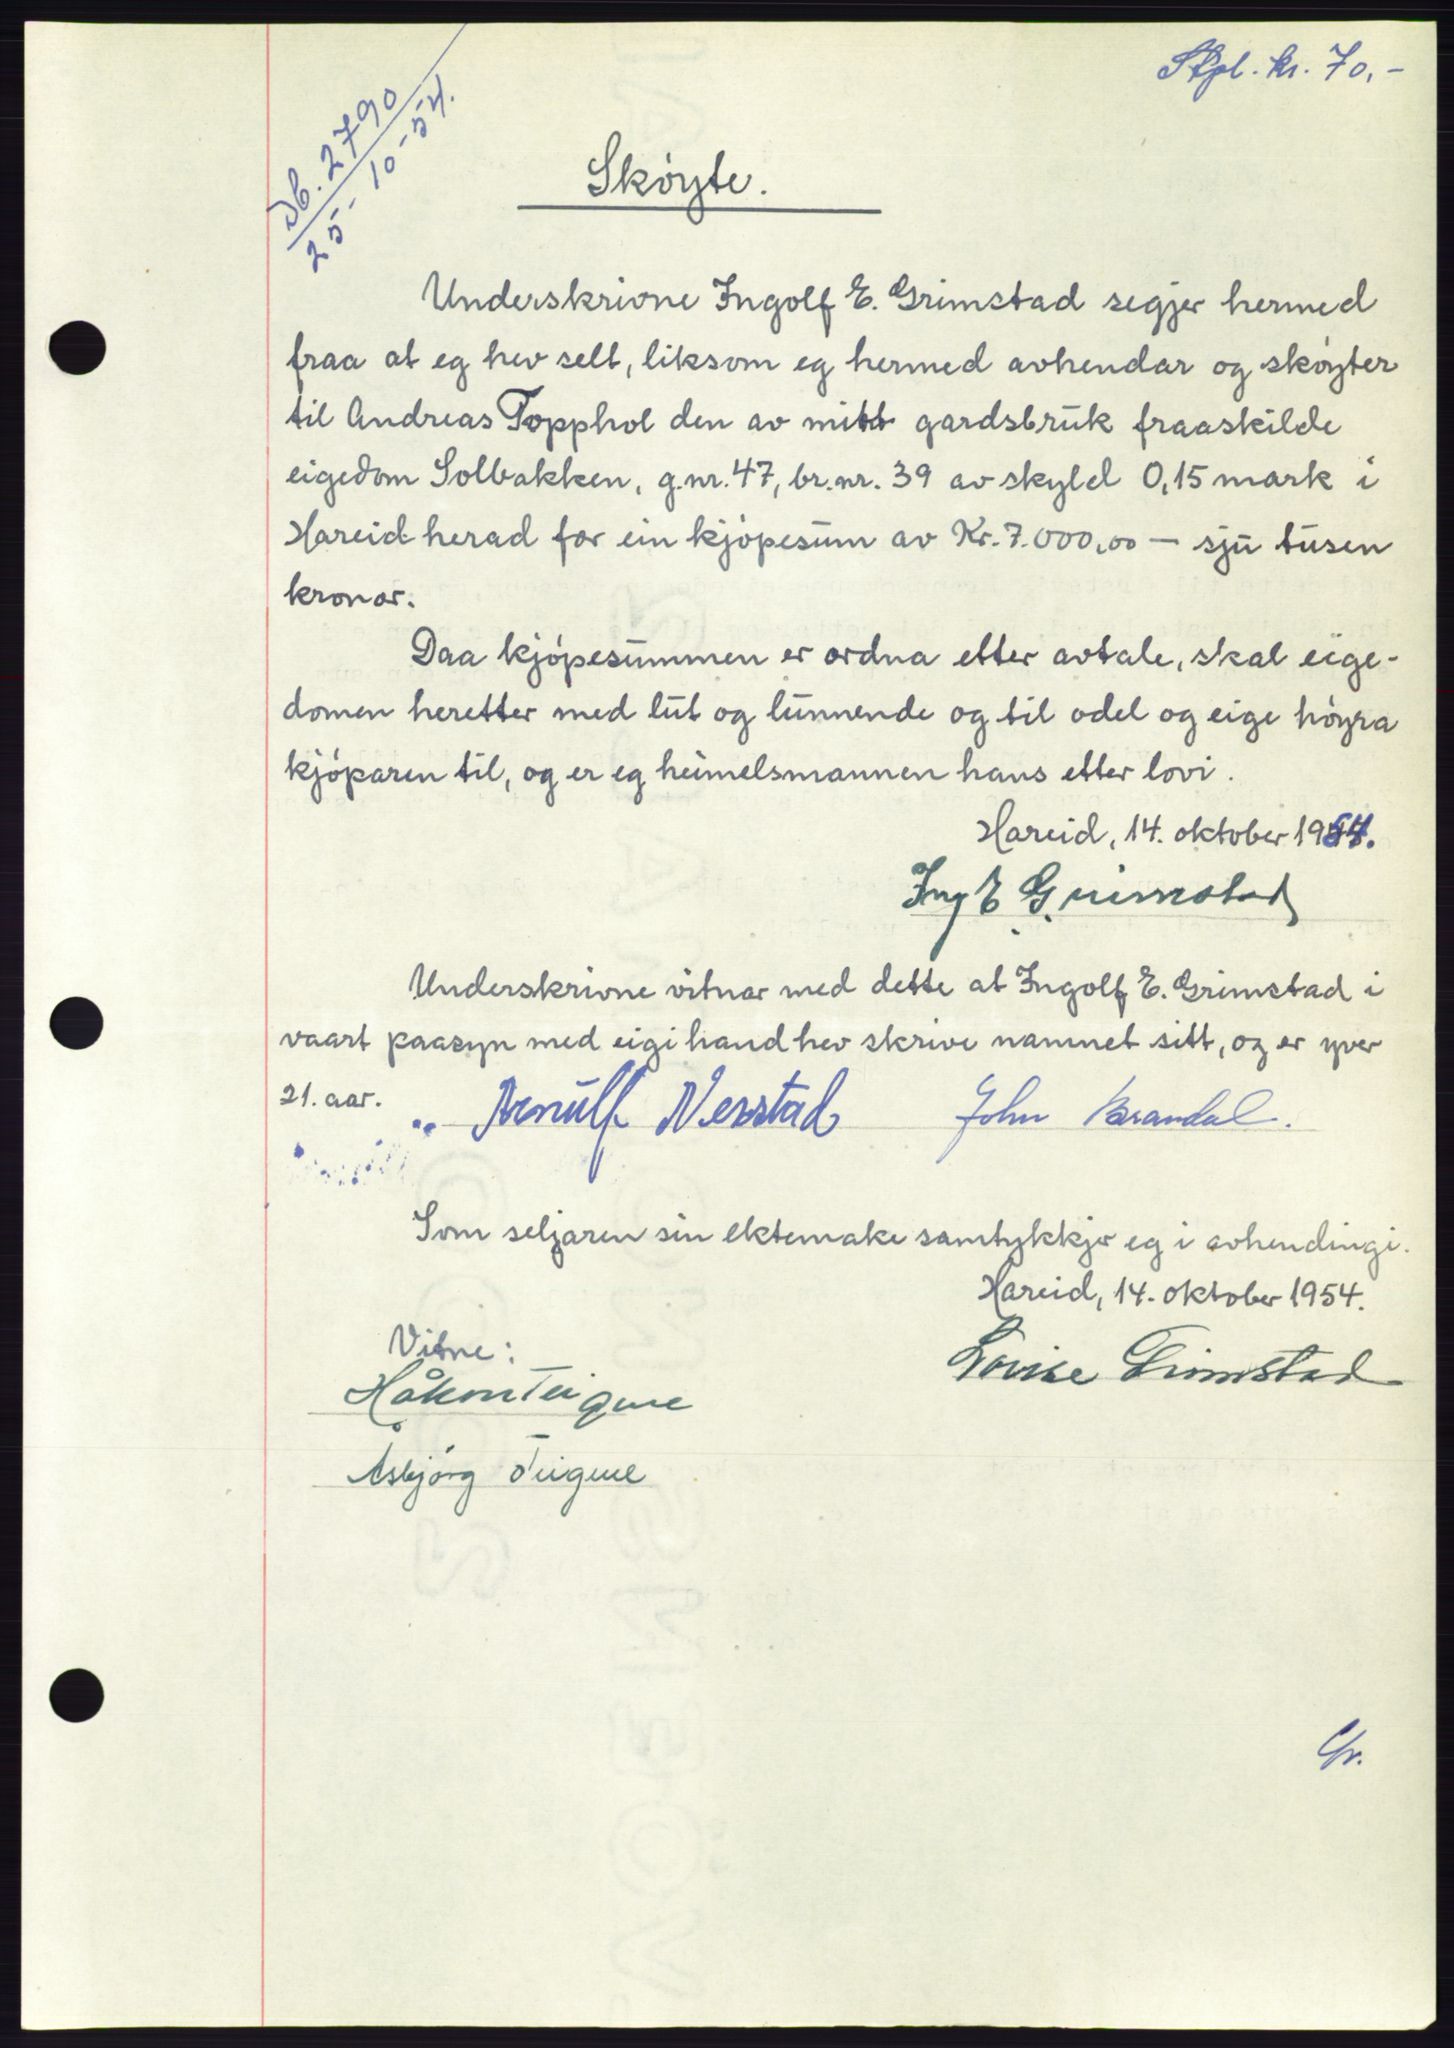 Stpl. kr. 70,-
Db. 2790
25-10-54.
Skøyte.
Underskrivne Ingolf E. Grimstad segjer hermed
fraa at eg hev selt, liksom eg hermed avhendar og skøyter
til Andreas Topphol den av mitt gardsbruk fraaskilde
eigedom Solbakken, g.nr. 47, br.nr. 39 av skyld 0,15 mark i
Hareid herad for ein kjøpesum av Kr. 7.000,00 — sju tusen
kronor.
Daa kjøpesummen er ordna etter avtale, skal eige-
domen heretter med lut og lunnende og til odel og eige høyra
kjøparen til, og er eg heimelsmannen hans etter lovi.
Hareid, 14. oktober 1954.
Ing E Grimstad
Underskrivne vitnar med dette at Ingolf E. Grimstad i
vaart paasyn med eigi hand hev skrive namnet sitt, og er yver
21. aar.
Arnulf Nesstad John Brandal.
Som seljaren sin ektemake samtykkjer eg i avhendingi.
Hareid, 14. oktober 1954.
Vitne:
Lovise Grimstad
Håkon Teigene
Asbjørg Teigene